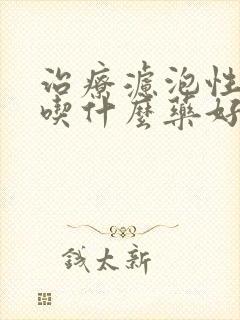 治療濾泡性
喫什麼藥好
錢太新